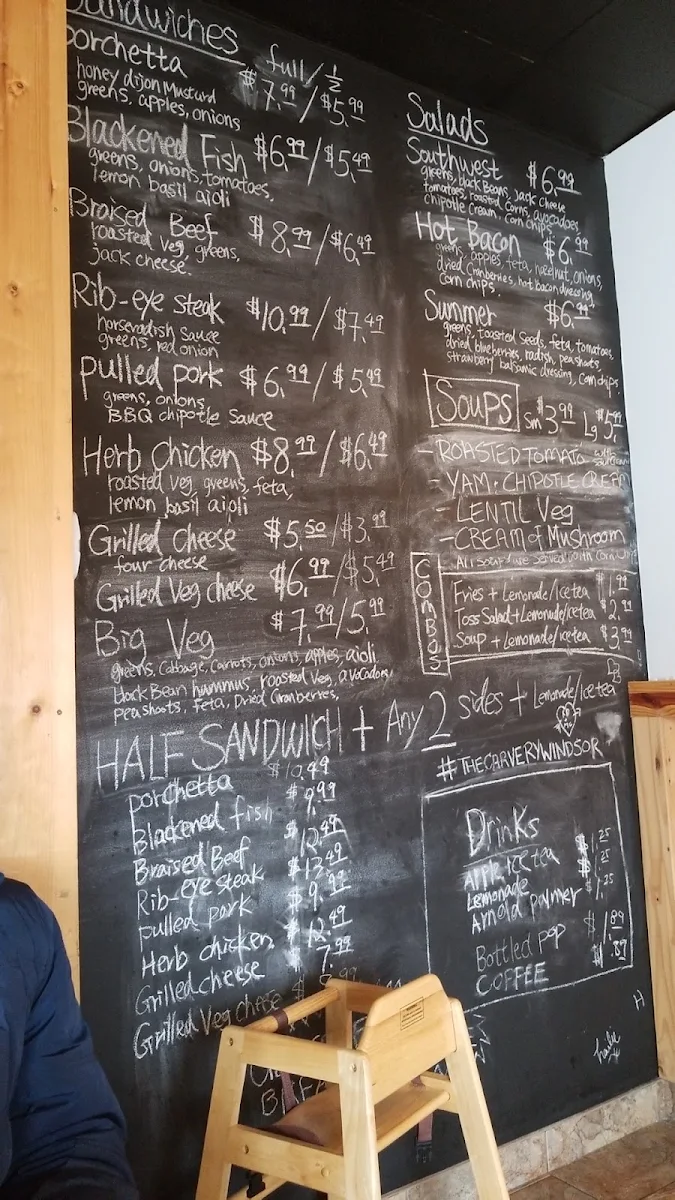 Sandwiches
full / 1/2
porchetta $7.99 / $5.99
honey dijon mustard
greens, apples, onions
Blackened Fish $6.99 / $5.49
greens, onions, tomatoes,
lemon basil aioli
Braised Beef $8.99 / $6.49
roasted veg, greens,
jack cheese.
Rib-eye steak $10.99 / $7.49
horseradish sauce
greens, red onion
pulled pork $6.99 / $5.49
greens, onions,
BBQ chipotle sauce
Herb chicken $8.99 / $6.49
roasted veg, greens, feta,
lemon basil aioli
Grilled Cheese $5.50 / $3.99
four cheese
Grilled Veg cheese $6.99 / $5.49
Big Veg $7.99 / 5.99
greens, Cabbage, Carrots, onions, apples, aioli
black Bean hummus, roasted veg, avocadoes,
peashoots, feta, Dried Cranberries,
Salads
Southwest $6.99
greens, black Beans, jack cheese
tomatoes, roasted corns, avocadoes,
chipotle cream, corn chips
Hot Bacon $6.99
greens, apples, feta, hazelnut, onions,
dried cranberries, hot bacon dressing,
corn chips.
Summer $6.99
greens, toasted seeds, feta, tomatoes,
dried blueberries, radish, peashoots,
strawberry balsamic dressing, corn chips.
Soups Sm $3.99 Lg $5.99
- ROASTED TOMATO with
- YAM + CHIPOTLE CREAM
- LENTIL Veg
- CREAM of Mushroom
All soups are served with corn chips
COMBOS
Fries + Lemonade/Icetea $1.99
Toss Salad + Lemonade/Icetea $2.99
Soup + Lemonade/Icetea $3.99
HALF SANDWICH + Any 2 sides + Lemonade/Icetea
porchetta $10.49
Blackened fish $9.99
Braised Beef $12.49
Rib-eye steak $13.49
pulled pork $9.99
Herb chicken $12.49
Grilled cheese 7.99
Grilled Veg cheese $9.99
#THECARVERYWINDSOR
Drinks
Apple Ice tea $1.25
Lemonade $1.25
Arnold palmer $1.25
Bottled pop $1.89
COFFEE $1.89